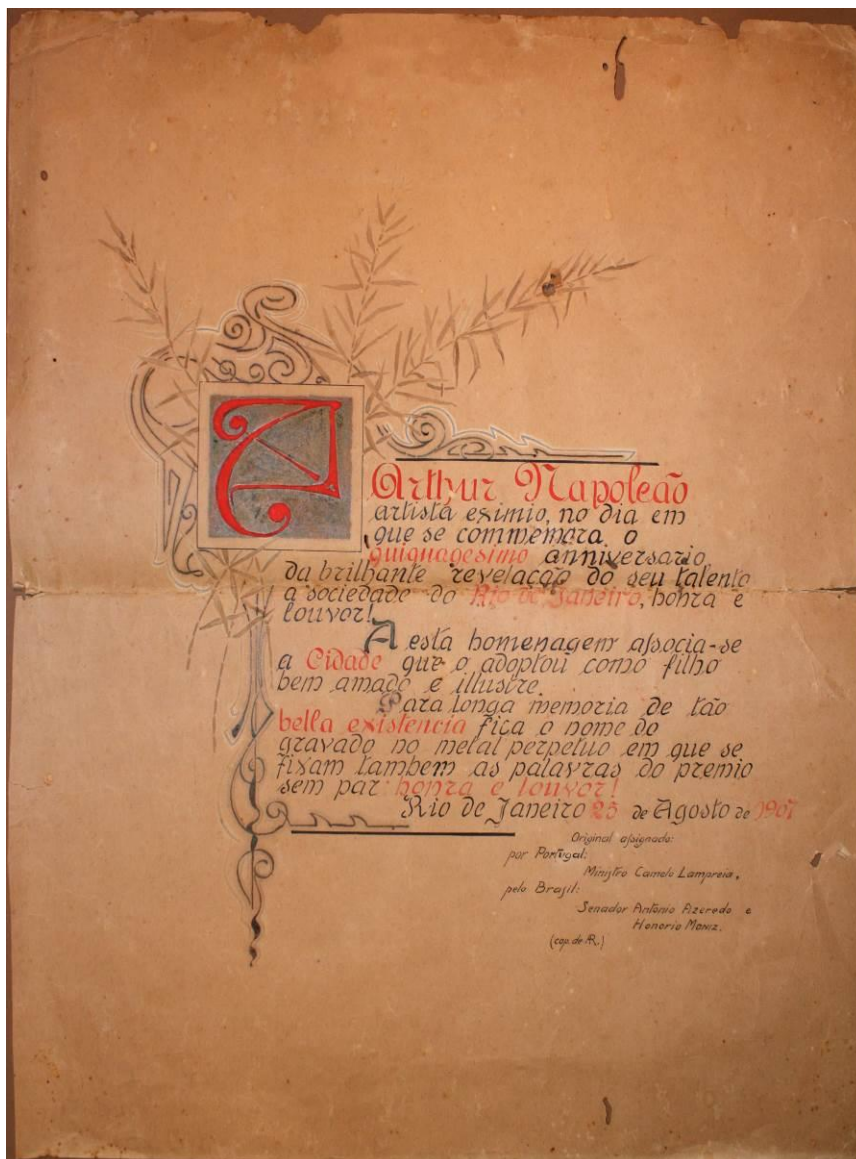 A
Arthur Napoleão
artista eximio, no dia em
que se commemora o
quiquagesimo anniversario
da brilhante revelação do seu talento
a sociedade do Rio de Janeiro, honra e
louvor!
A esta homenagem associa-se
a Cidade que o adoptou como filho
bem amado e illustre.
Para longa memoria de tão
bella existencia fica o nome do
gravado no metal perpetuo em que se
fixam tambem as palavras do premio
sem par: honra e louvor!
Rio de Janeiro 25 de Agosto de 1907
Original assignado:
por Portugal:
Ministro Camelo Lampreia.
pelo Brasil:
Senador António Azeredo e
Honorio Moniz.
(cop. de AR.)